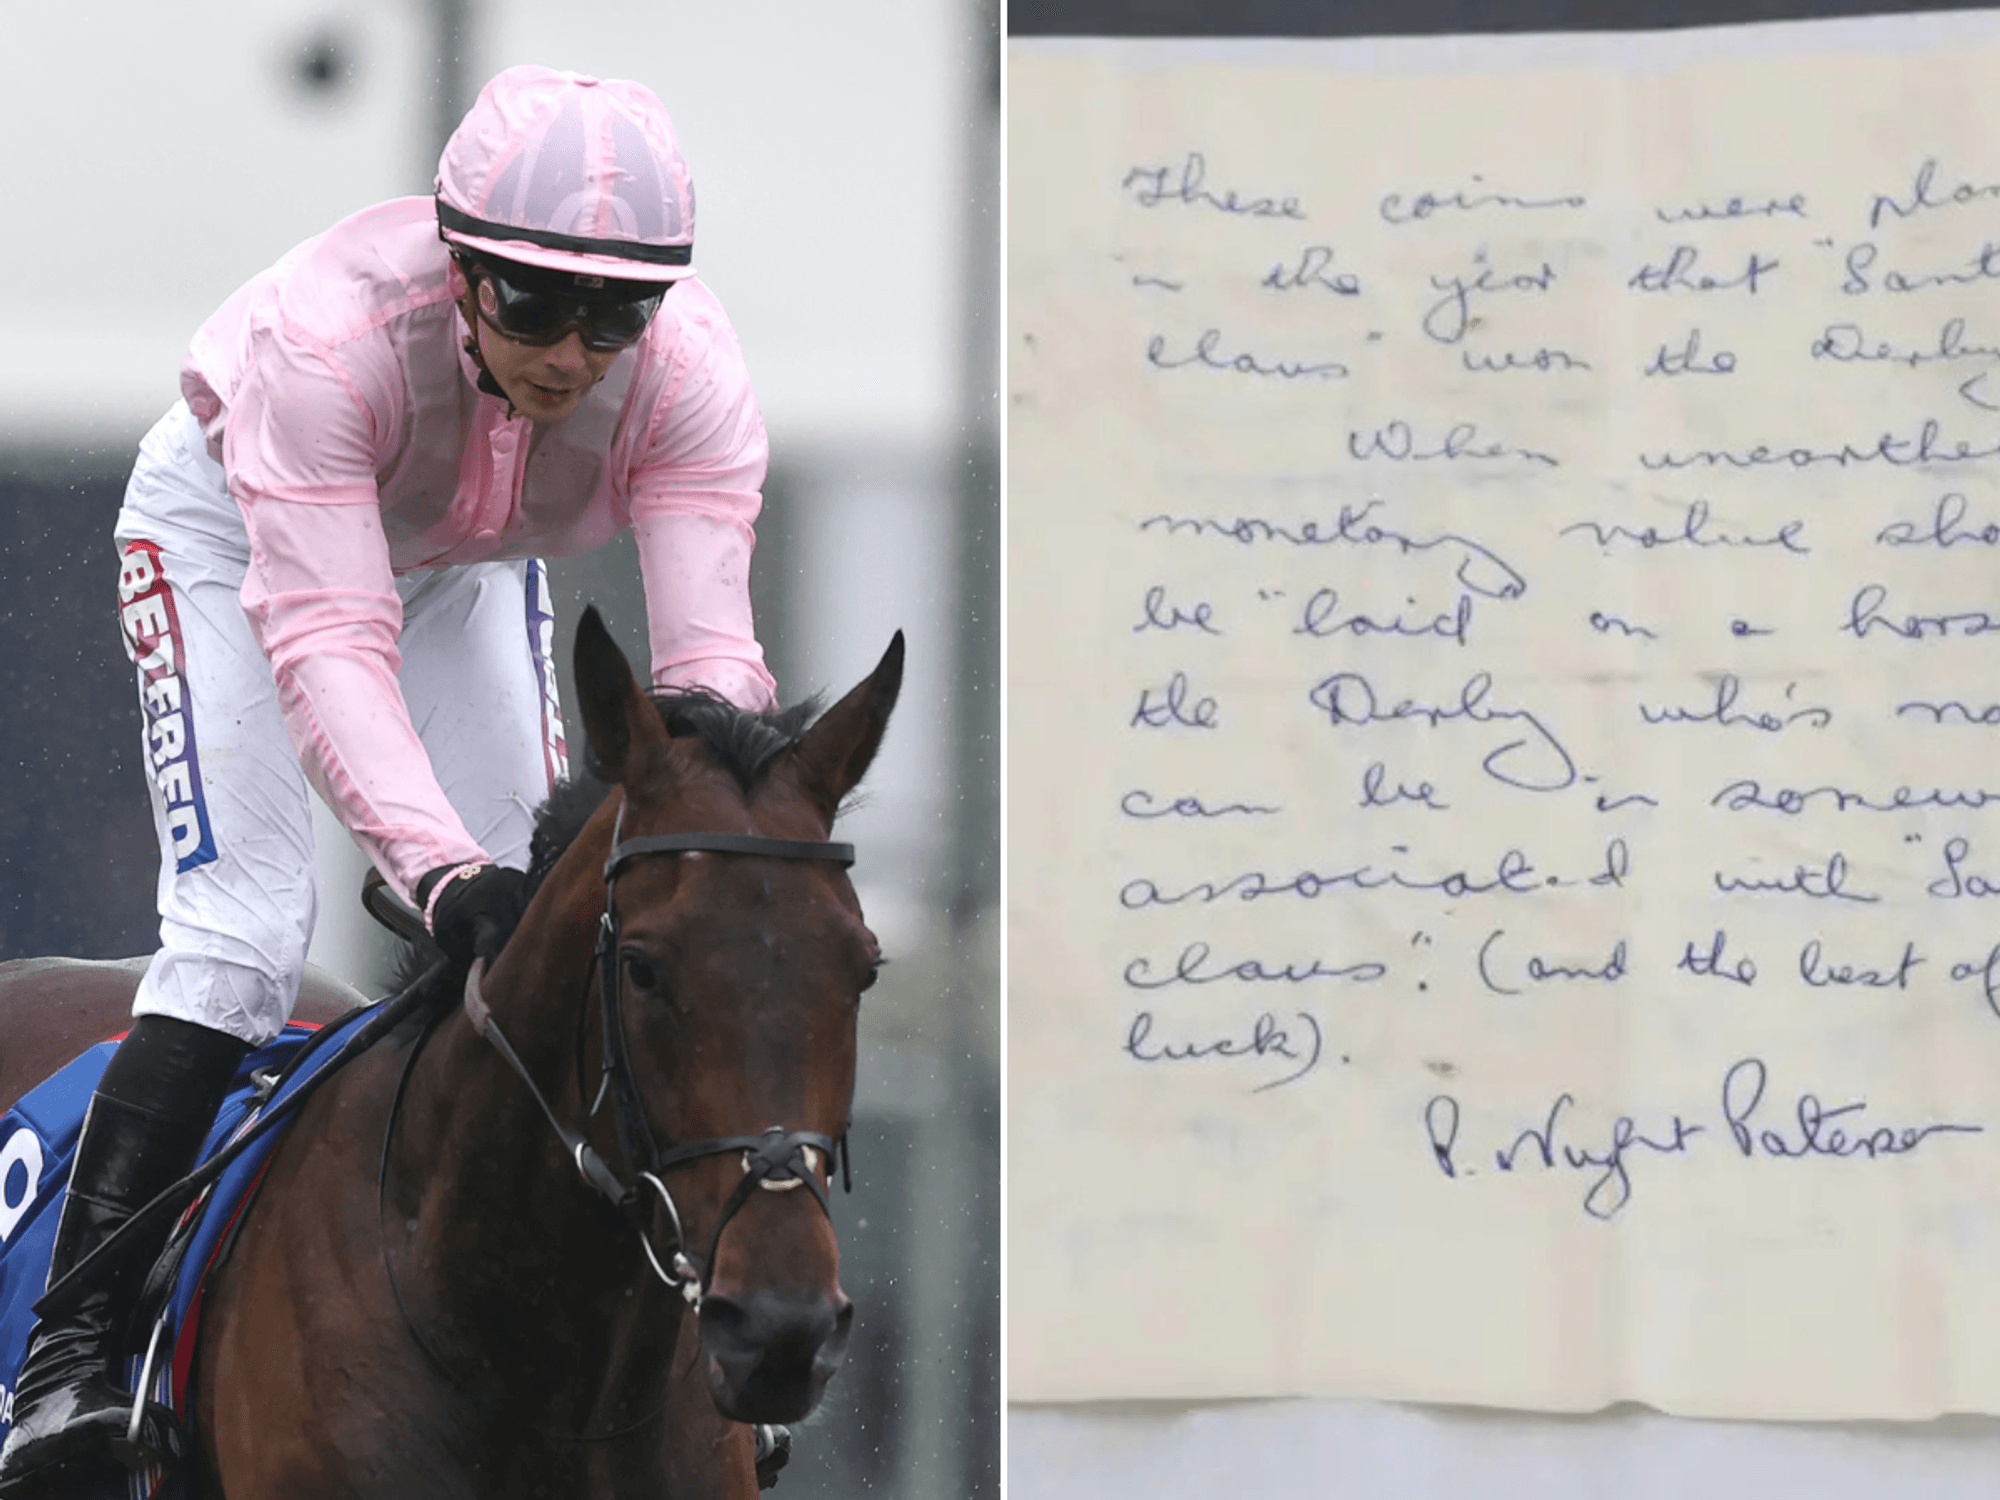 BETFRED
These coins were plan
in the year that "Sant
claus" won the Derby
When unearthe
monetary value sho
be "laid" on a hors
the Derby who's na
can be in somew
associated with "Sa
claus". (and the best of
luck).
P. Wright Paterson